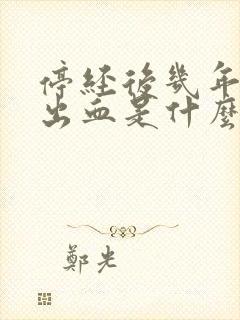 停經後幾年
出血是什麼
鄭光